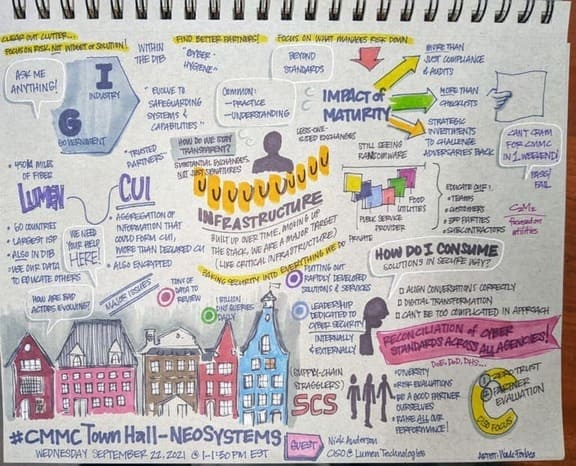 CLEAR OUT CLUTTER...
FOCUS ON RISK NOT WIDGET or SOLUTION!
ASK ME
ANYTHING!
I
INDUSTRY
G
GOVERNMENT
WITHIN
THE DIB
FIND BETTER PARTNERS!
"CYBER
HYGIENE"
"EVOLVE TO
SAFEGUARDING
SYSTEMS &
CAPABILITIES"
"TRUSTED
PARTNERS"
FOCUS ON WHAT MANAGES RISK DOWN
BEYOND
STANDARDS
COMMON:
- PRACTICE
- UNDERSTANDING
IMPACT of
MATURITY
MORE THAN
JUST COMPLIANCE
& AUDITS
MORE THAN
CHECKLISTS
STRATEGIC
INVESTMENTS
TO CHALLENGE
ADVERSARIES BACK
CAN'T CRAM
FOR CMMC
IN 1 WEEKEND!
PASS/
FAIL
HOW DO WE STAY
TRANSPARENT?
SUBSTANTIAL EXCHANGES
NOT JUST SIGNATURES
LESS ONE-
SIDED EXCHANGES
STILL SEEING
RANSOMWARE
• 450K MILES
OF FIBER
LUMEN
• 60 COUNTRIES
• LARGEST ISP
• ALSO IN DIB
• USE OUR DATA
TO EDUCATE OTHERS
CUI
• AGGREGATION OF
INFORMATION THAT
COULD FORM CUI,
MORE THAN DECLARED CUI
• ALSO ENCRYPTED
WE NEED
YOUR HELP
HERE!
INFRASTRUCTURE
BUILT UP OVER TIME, MOVING UP
THE STACK, WE ARE A MAJOR TARGET
(LIKE CRITICAL INFRASTRUCTURE)
BAKING SECURITY INTO EVERYTHING WE DO
FOOD
UTILITIES
PUBLIC SERVICE
PROVIDER
PRIVATE
EDUCATE OUR:
• TEAMS
• CUSTOMERS
• 3RD PARTIES
• SUBCONTRACTORS
C2M2
focused on
utilities
HOW DO I CONSUME
SOLUTIONS IN SECURE WAY?
ALIGN CONVERSATIONS CORRECTLY
DIGITAL TRANSFORMATION
CAN'T BE TOO COMPLICATED IN APPROACH
HOW ARE BAD
ACTORS EVOLVING?
MAJOR ISSUES
TONS OF
DATA TO
REVIEW
1 BILLION
DNS QUERIES
DAILY
PUTTING OUT
RAPIDLY DEVELOPED
SOLUTIONS & SERVICES
LEADERSHIP
DEDICATED TO
CYBER SECURITY
INTERNALLY
& EXTERNALLY
RECONCILIATION OF CYBER
STANDARDS ACROSS ALL AGENCIES!
DoE, DoD, DHS...
(SUPPLY-CHAIN
STRAGGLERS)
SCS
• DIVERSITY
• RISK EVALUATIONS
• BE A GOOD PARTNER
OURSELVES
• RAISE ALL OUR
PERFORMANCE!
1 ZERO TRUST
2 PARTNER
EVALUATION
CISO FOCUS
#CMMC TOWN HALL - NEOSYSTEMS
WEDNESDAY SEPTEMBER 22, 2021 @ 1-1:30 PM EST
GUEST
Nick Anderson
CISO @ Lumen Technologies